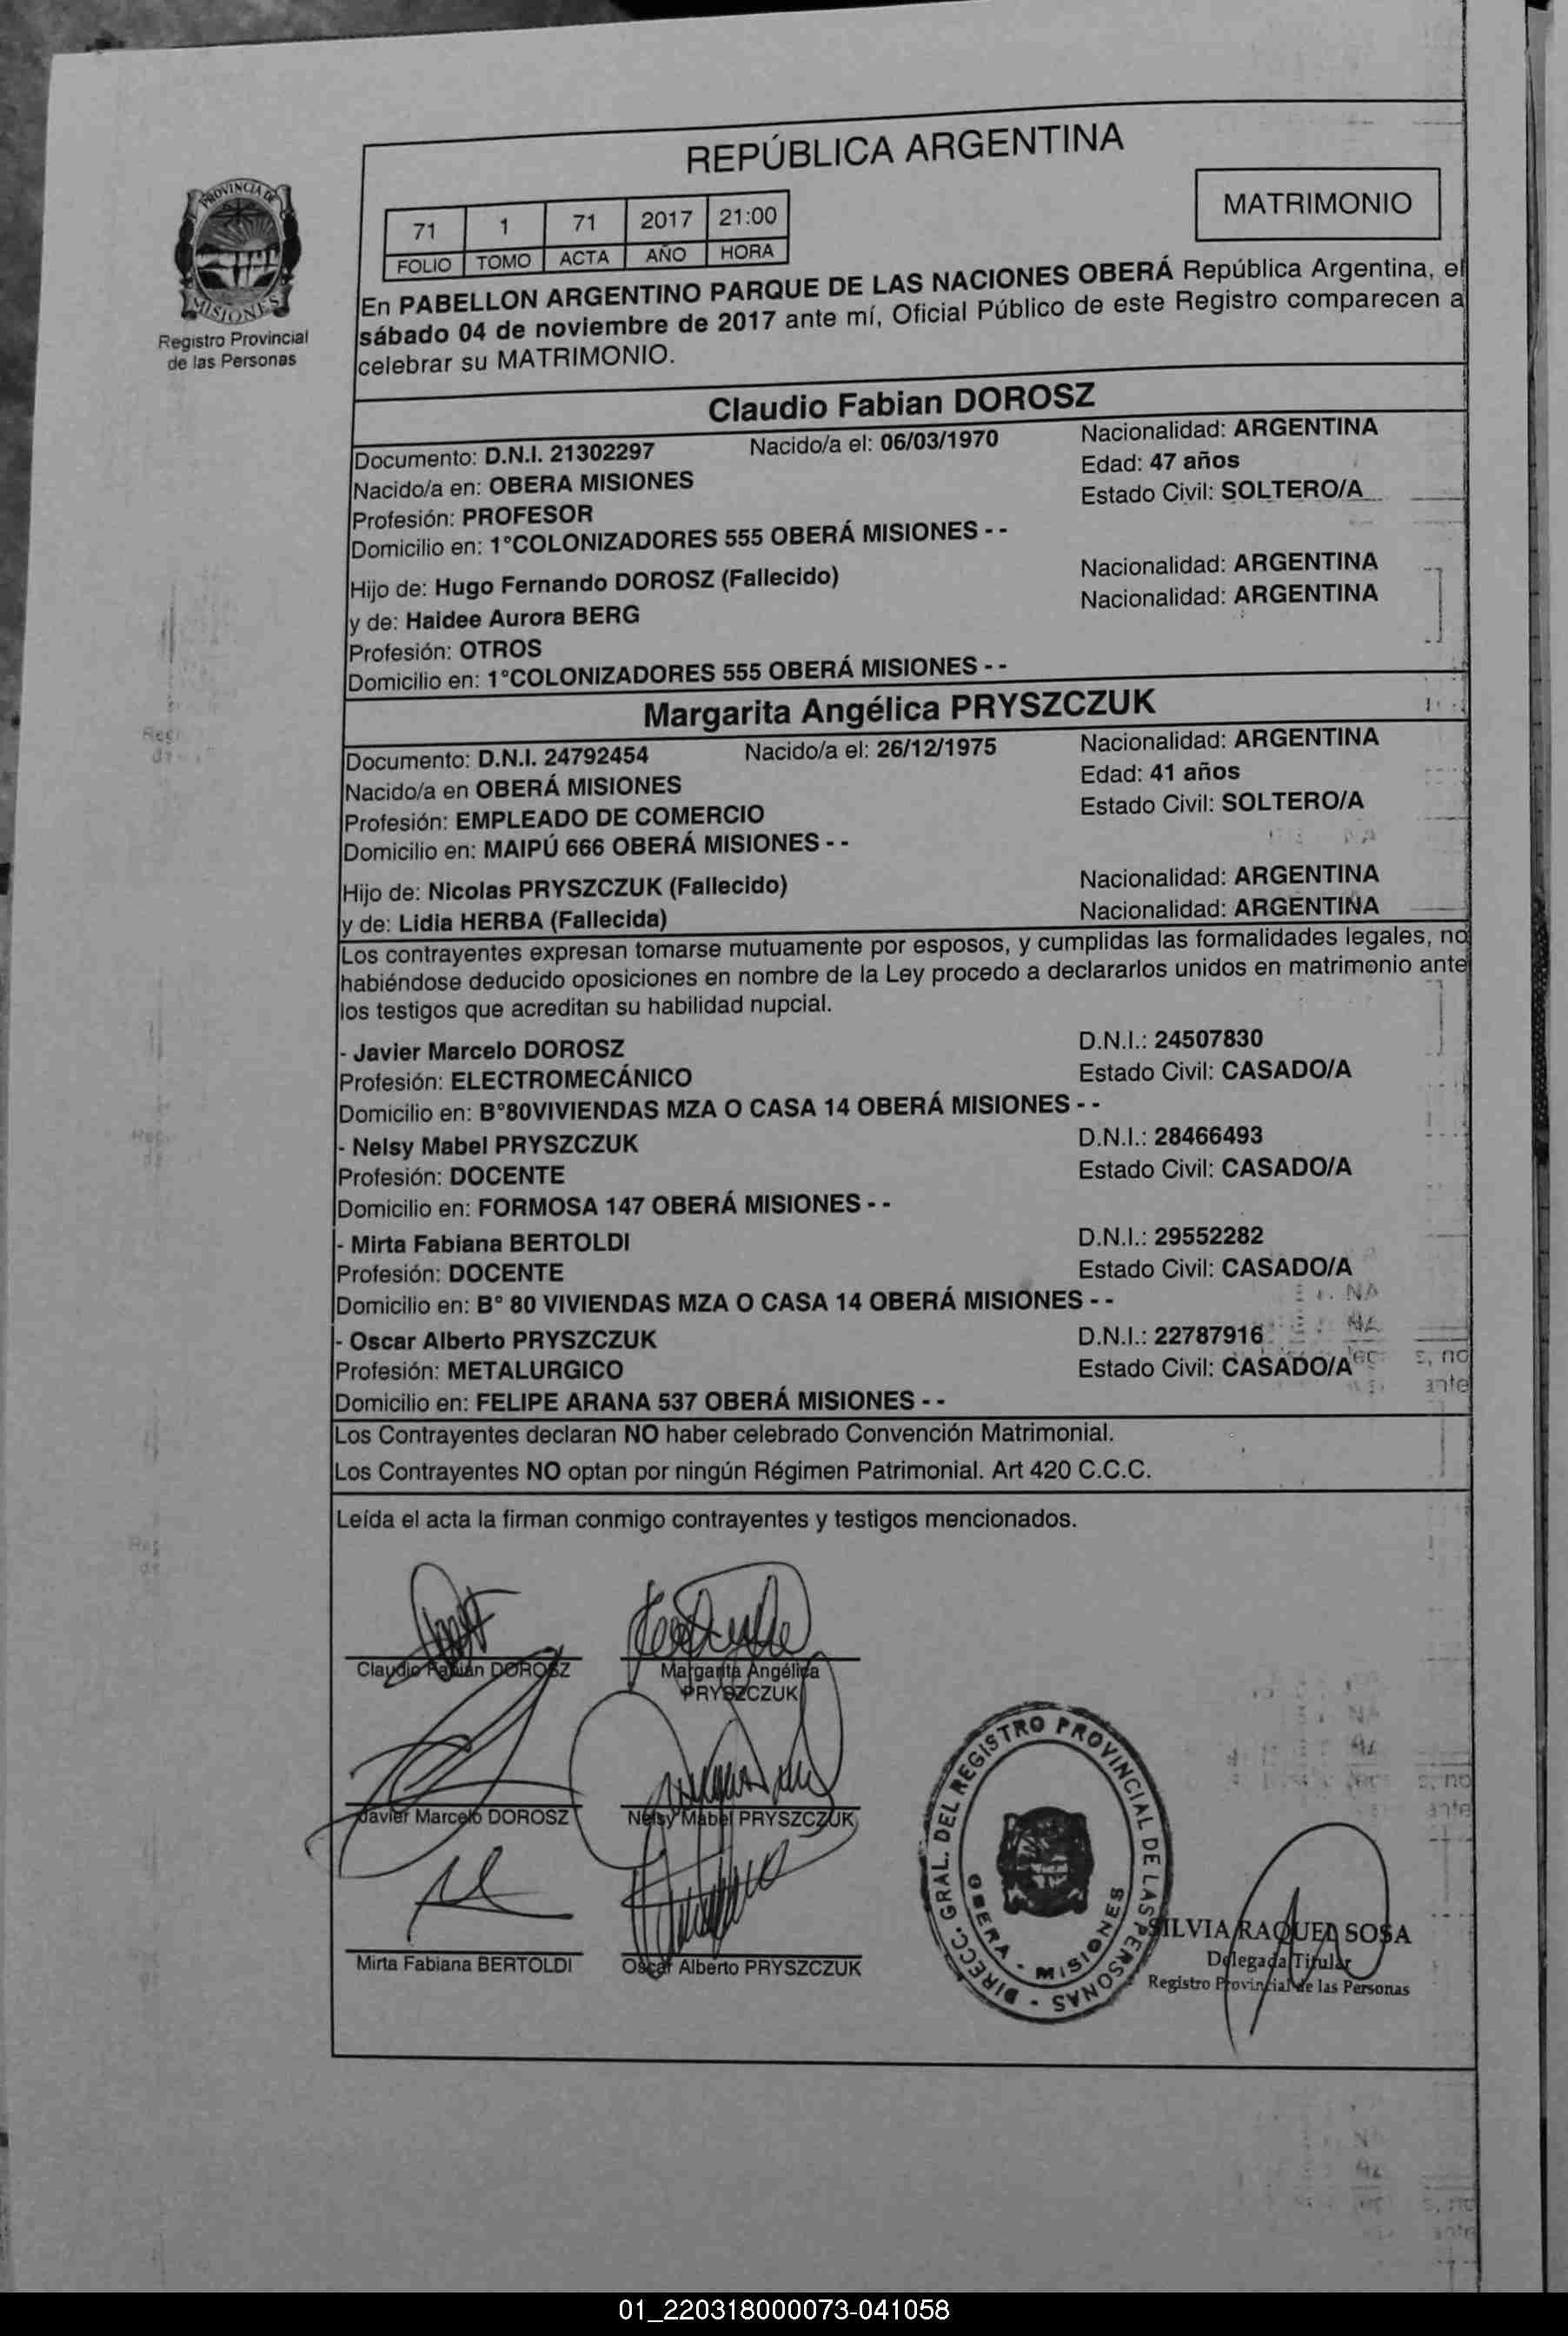 REPÚBLICA ARGENTINA
PROVINCIA DE
MISIONES
Registro Provincial
de las Personas
71 1 71 2017 21:00
FOLIO TOMO ACTA AÑO HORA
MATRIMONIO
En PABELLON ARGENTINO PARQUE DE LAS NACIONES OBERÁ República Argentina, el
sábado 04 de noviembre de 2017 ante mí, Oficial Público de este Registro comparecen a
celebrar su MATRIMONIO.
Claudio Fabian DOROSZ
Documento: D.N.I. 21302297 Nacido/a el: 06/03/1970 Nacionalidad: ARGENTINA
Nacido/a en: OBERA MISIONES Edad: 47 años
Profesión: PROFESOR Estado Civil: SOLTERO/A
Domicilio en: 1°COLONIZADORES 555 OBERÁ MISIONES - -
Hijo de: Hugo Fernando DOROSZ (Fallecido) Nacionalidad: ARGENTINA
y de: Haidee Aurora BERG Nacionalidad: ARGENTINA
Profesión: OTROS
Domicilio en: 1°COLONIZADORES 555 OBERÁ MISIONES - -
Margarita Angélica PRYSZCZUK
Documento: D.N.I. 24792454 Nacido/a el: 26/12/1975 Nacionalidad: ARGENTINA
Nacido/a en OBERÁ MISIONES Edad: 41 años
Profesión: EMPLEADO DE COMERCIO Estado Civil: SOLTERO/A
Domicilio en: MAIPÚ 666 OBERÁ MISIONES - -
Hijo de: Nicolas PRYSZCZUK (Fallecido) Nacionalidad: ARGENTINA
y de: Lidia HERBA (Fallecida) Nacionalidad: ARGENTINA
Los contrayentes expresan tomarse mutuamente por esposos, y cumplidas las formalidades legales, no
habiéndose deducido oposiciones en nombre de la Ley procedo a declararlos unidos en matrimonio ante
los testigos que acreditan su habilidad nupcial.
- Javier Marcelo DOROSZ D.N.I.: 24507830
Profesión: ELECTROMECÁNICO Estado Civil: CASADO/A
Domicilio en: B°80VIVIENDAS MZA O CASA 14 OBERÁ MISIONES - -
- Nelsy Mabel PRYSZCZUK D.N.I.: 28466493
Profesión: DOCENTE Estado Civil: CASADO/A
Domicilio en: FORMOSA 147 OBERÁ MISIONES - -
- Mirta Fabiana BERTOLDI D.N.I.: 29552282
Profesión: DOCENTE Estado Civil: CASADO/A
Domicilio en: B° 80 VIVIENDAS MZA O CASA 14 OBERÁ MISIONES - -
- Oscar Alberto PRYSZCZUK D.N.I.: 22787916
Profesión: METALURGICO Estado Civil: CASADO/A
Domicilio en: FELIPE ARANA 537 OBERÁ MISIONES - -
Los Contrayentes declaran NO haber celebrado Convención Matrimonial.
Los Contrayentes NO optan por ningún Régimen Patrimonial. Art 420 C.C.C.
Leída el acta la firman conmigo contrayentes y testigos mencionados.
Claudio Fabian DOROSZ Margarita Angélica
PRYSZCZUK
Javier Marcelo DOROSZ Nelsy Mabel PRYSZCZUK
Mirta Fabiana BERTOLDI Oscar Alberto PRYSZCZUK
DIRECC. GRAL. DEL REGISTRO PROVINCIAL DE LAS PERSONAS
OBERA - MISIONES
SILVIA RAQUEL SOSA
Delegada Titular
Registro Provincial de las Personas
01_220318000073-041058